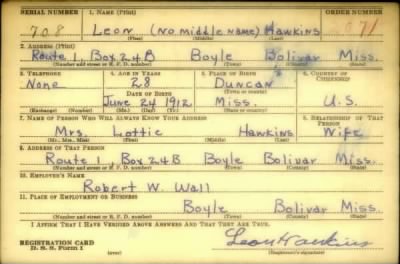 SERIAL NUMBER 1. NAME (Print) ORDER NUMBER
708 LEON (NO MIDDLE NAME) HAWKINS 171
(First) (Middle) (Last)
2. ADDRESS (Print)
Route 1, Box 24B Boyle Bolivar Miss.
(Number and street or R. F. D. number) (Town) (County) (State)
3. TELEPHONE 4. AGE IN YEARS 5. PLACE OF BIRTH 6. COUNTRY OF CITIZENSHIP
None 28 Duncan
DATE OF BIRTH (Town or county)
June 24 1912 Miss. U.S.
(Exchange) (Number) (Mo.) (Day) (Yr.) (State or country)
7. NAME OF PERSON WHO WILL ALWAYS KNOW YOUR ADDRESS 8. RELATIONSHIP OF THAT PERSON
Mrs. Lottie Hawkins Wife
(Mr., Mrs., Miss) (First) (Middle) (Last)
9. ADDRESS OF THAT PERSON
Route 1, Box 24B Boyle Bolivar Miss.
(Number and street or R. F. D. number) (Town) (County) (State)
10. EMPLOYER'S NAME
Robert W. Wall
11. PLACE OF EMPLOYMENT OR BUSINESS
Boyle Bolivar Miss.
(Number and street or R. F. D. number) (Town) (County) (State)
I AFFIRM THAT I HAVE VERIFIED ABOVE ANSWERS AND THAT THEY ARE TRUE.
REGISTRATION CARD Leon Hawkins
D. S. S. Form 1 (over) (Registrant's signature)